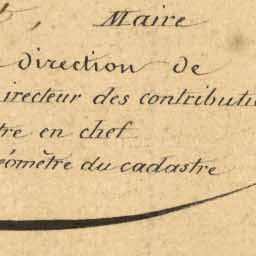 Maire
direction de
irecteur des contributi
tre en chef
éomètre du cadastre